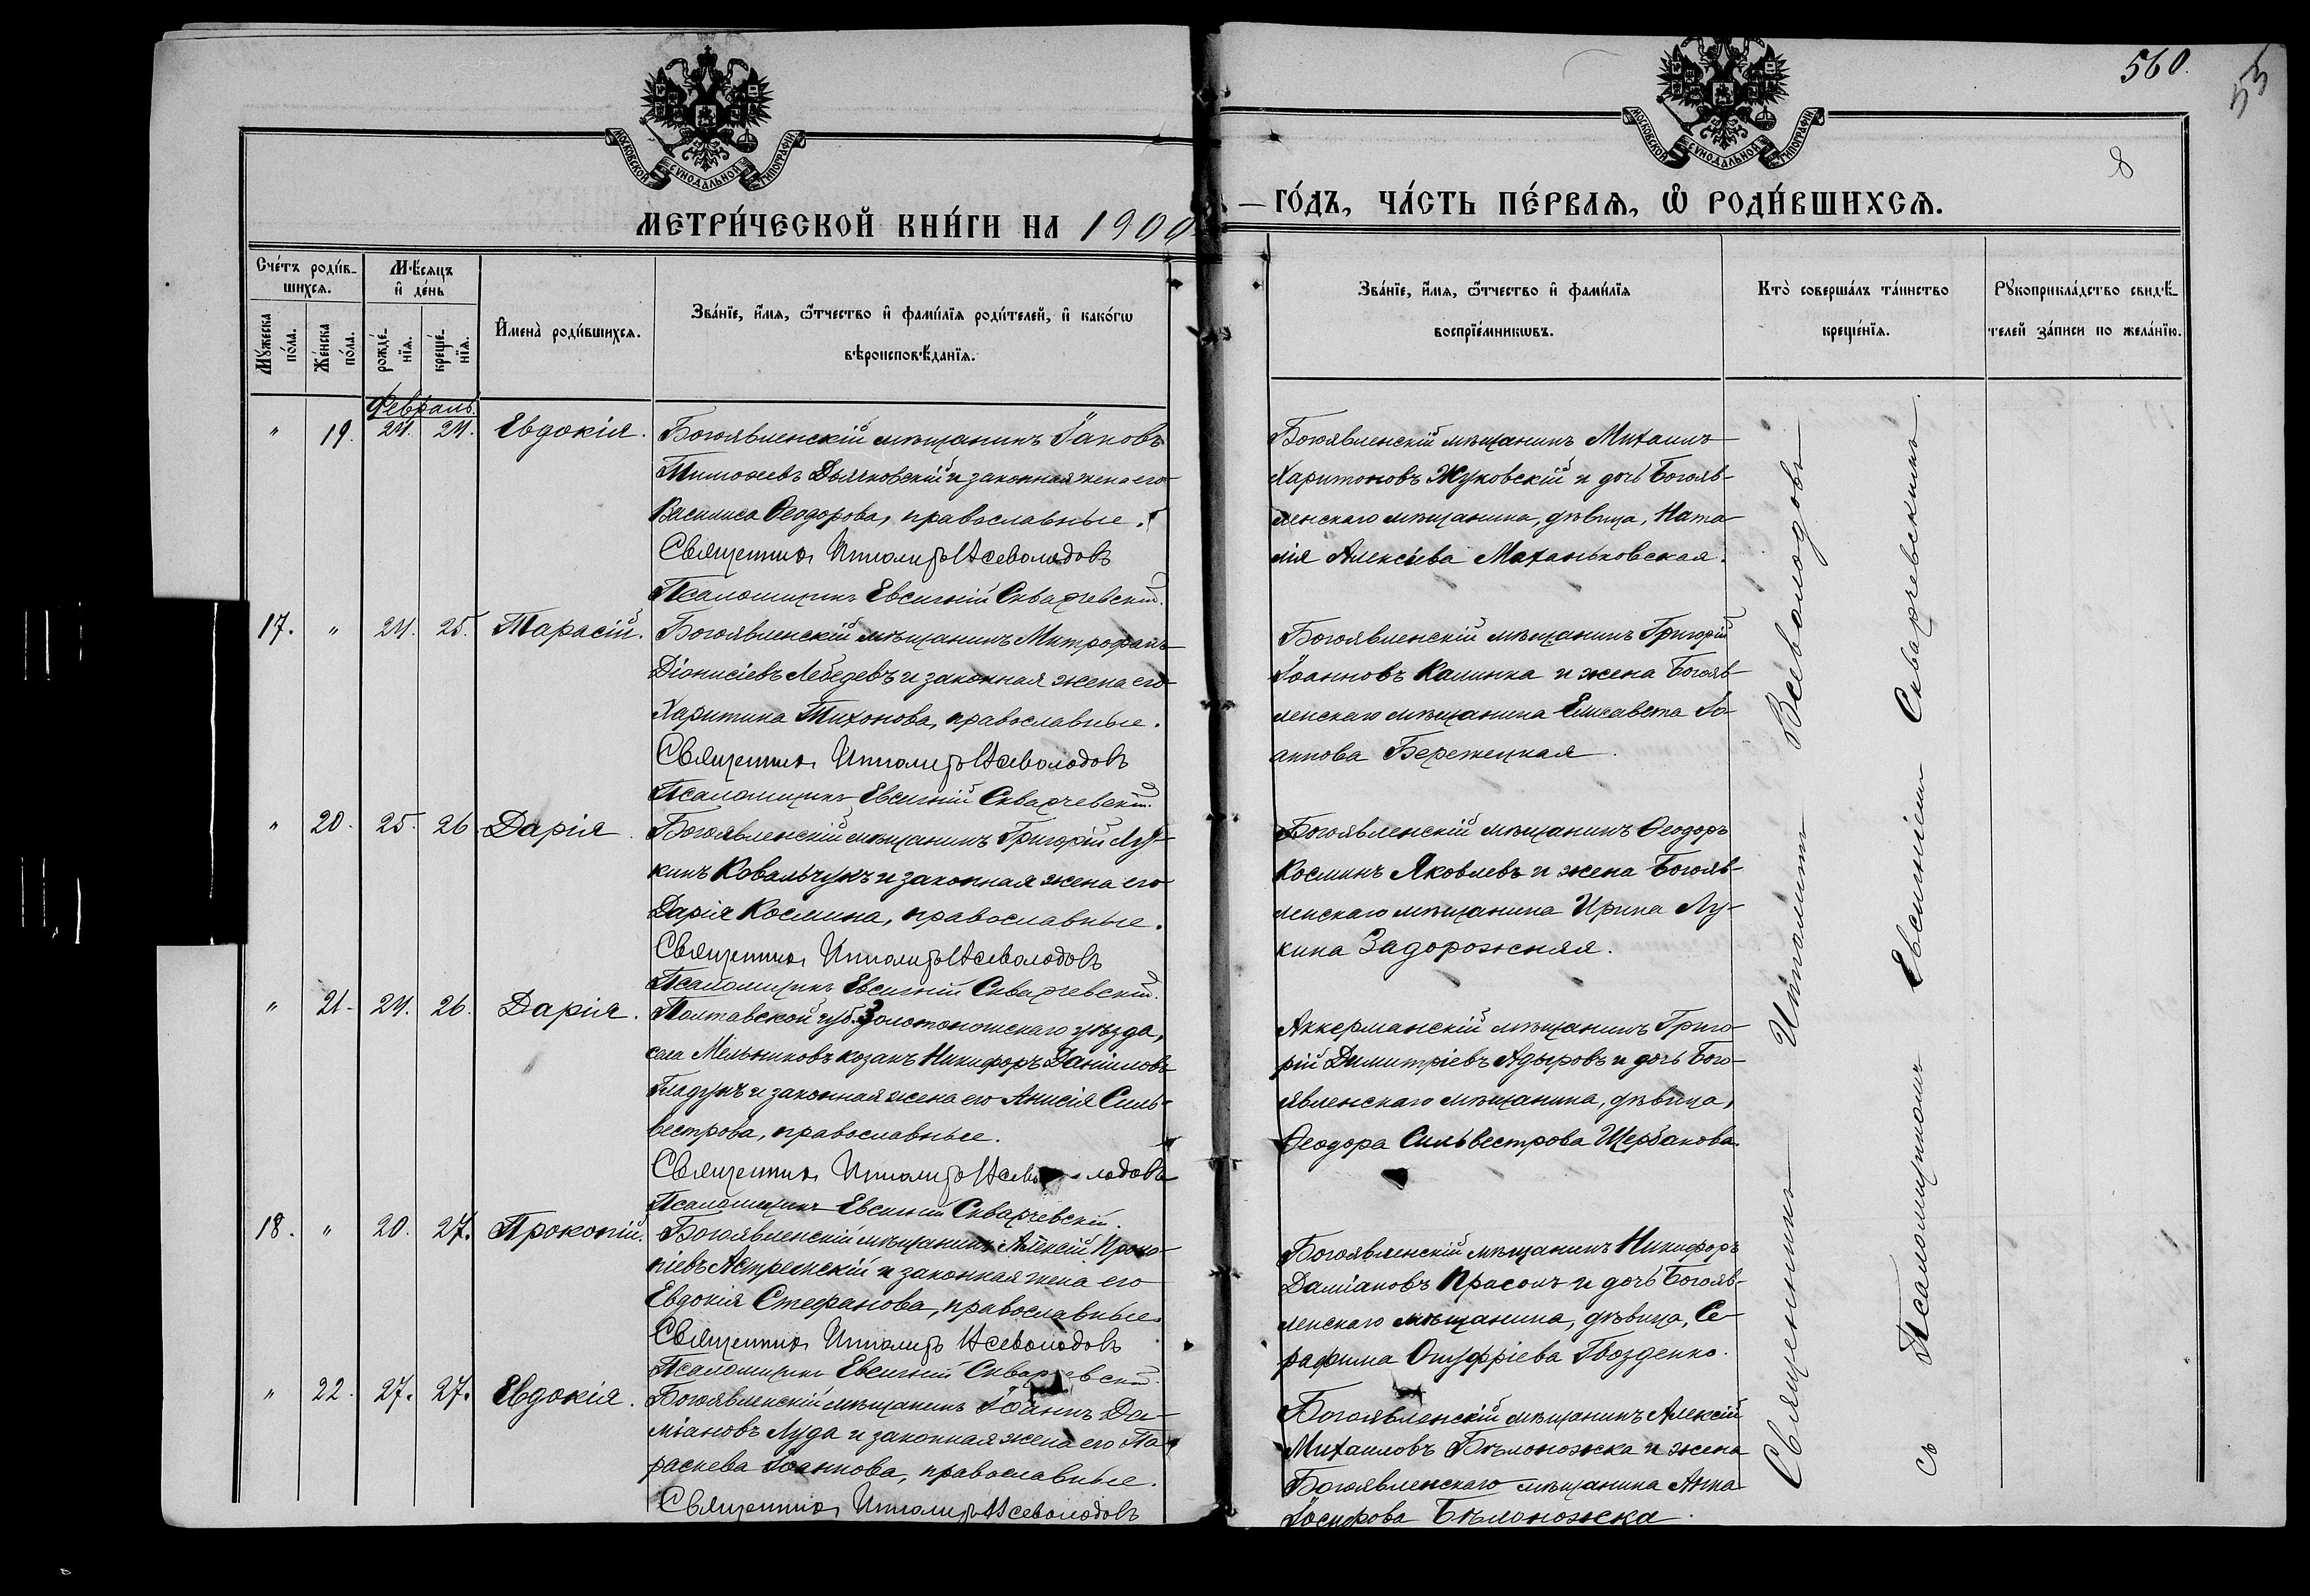 560.
53
8
МОСКОВСКОЙ СѴНОДАЛЬНОЙ ТИПОГРАФІИ
МОСКОВСКОЙ СѴНОДАЛЬНОЙ ТИПОГРАФІИ
МЕТРИ́ЧЕСКОЙ КНИ́ГИ НА 1900
ГО́ДЪ, ЧА́СТЬ ПЕ́РВАѦ, Ѽ РОДИ́ВШИХСѦ.
Сче́тъ роди́в-
шихсѧ.
Мꙋ́жеска по́ла.
Же́нска по́ла.
Мѣ́сяцъ
и҆ де́нь
рожде́-нїѧ.
креще́-нїѧ.
И҆мена̀ роди́вшихсѧ.
Зва́нїе, и҆́мѧ, ѻ҆́тчество и҆ фамѝлїѧ роди́телей, и҆ како́гѡ
вѣроисповѣ́данїѧ.
Зва́нїе, и҆́мѧ, ѻ҆́тчество и҆ фами́лїѧ
воспрїе́мникѡвъ.
Кто̀ соверша́лъ та́инство
креще́нїѧ.
Рꙋкоприкла́дство свидѣ́-
телей за́писи по жела́нїю.
Февраль
" 19. 24. 24. Евдокія.
Богоявленскій мѣщанинъ Іаковъ
Тимоѳеевъ Дьячковскій и законная жена его
Василиса Ѳеодорова, православные.
Священникъ Ипполитъ Всеволодовъ
Псаломщикъ Евсигній Скварчевскій.
Богоявленскій мѣщанинъ Михаилъ
Харитоновъ Жуковскій и дочь Богояв-
ленскаго мѣщанина, дѣвица, Ната-
лія Алексѣева Маханьковская.
17. " 24. 25. Тарасій.
Богоявленскій мѣщанинъ Митрофанъ
Діонисіевъ Лебедевъ и законная жена его
Харитина Тихонова, православные.
Священникъ Ипполитъ Всеволодовъ
Псаломщикъ Евсигній Скварчевскій.
Богоявленскій мѣщанинъ Григорій
Іоанновъ Калинка и жена Богояв-
ленскаго мѣщанина Елисавета Іо-
аннова Бережецкая.
" 20. 25. 26. Дарія.
Богоявленскій мѣщанинъ Григорій Лу-
кинъ Ковальчукъ и законная жена его
Дарія Космина, православные.
Священникъ Ипполитъ Всеволодовъ
Псаломщикъ Евсигній Скварчевскій.
Богоявленскій мѣщанинъ Ѳеодоръ
Косминъ Яковлевъ и жена Богояв-
ленскаго мѣщанина Ирина Лу-
кина Задорожняя.
" 21. 24. 26. Дарія.
Полтавской губ. Золотоношскаго уѣзда,
села Мельниковъ козакъ Никифоръ Даніиловъ
Гладунъ и законная жена его Анисія Силь-
вестрова, православные.
Священникъ Ипполитъ Всеволодовъ
Псаломщикъ Евсигній Скварчевскій.
Аккерманскій мѣщанинъ Григо-
рій Димитріевъ Адыровъ и дочь Бого-
явленскаго мѣщанина, дѣвица,
Ѳеодора Сильвестрова Щербакова.
18. " 20. 27. Прокопій.
Богоявленскій мѣщанинъ Алексій Проко-
піевъ Астрелскій и законная жена его
Евдокія Стефанова, православные.
Священникъ Ипполитъ Всеволодовъ
Псаломщикъ Евсигній Скварчевскій.
Богоявленскій мѣщанинъ Никифоръ
Даміановъ Прасолъ и дочь Богояв-
ленскаго мѣщанина, дѣвица, Се-
рафима Онуфріева Гвозденко.
" 22. 27. 27. Евдокія.
Богоявленскій мѣщанинъ Іоаннъ Да-
міановъ Луда и законная жена его Па-
раскева Іоаннова, православные.
Священникъ Ипполитъ Всеволодовъ
Богоявленскій мѣщанинъ Алексій
Михаиловъ Бѣлоножка и жена
Богоявленскаго мѣщанина Анна
Іосифова Бѣлоножка.
Священникъ Ипполитъ Всеволодовъ
съ Псаломщикомъ Евсигніемъ Скварчевскимъ.